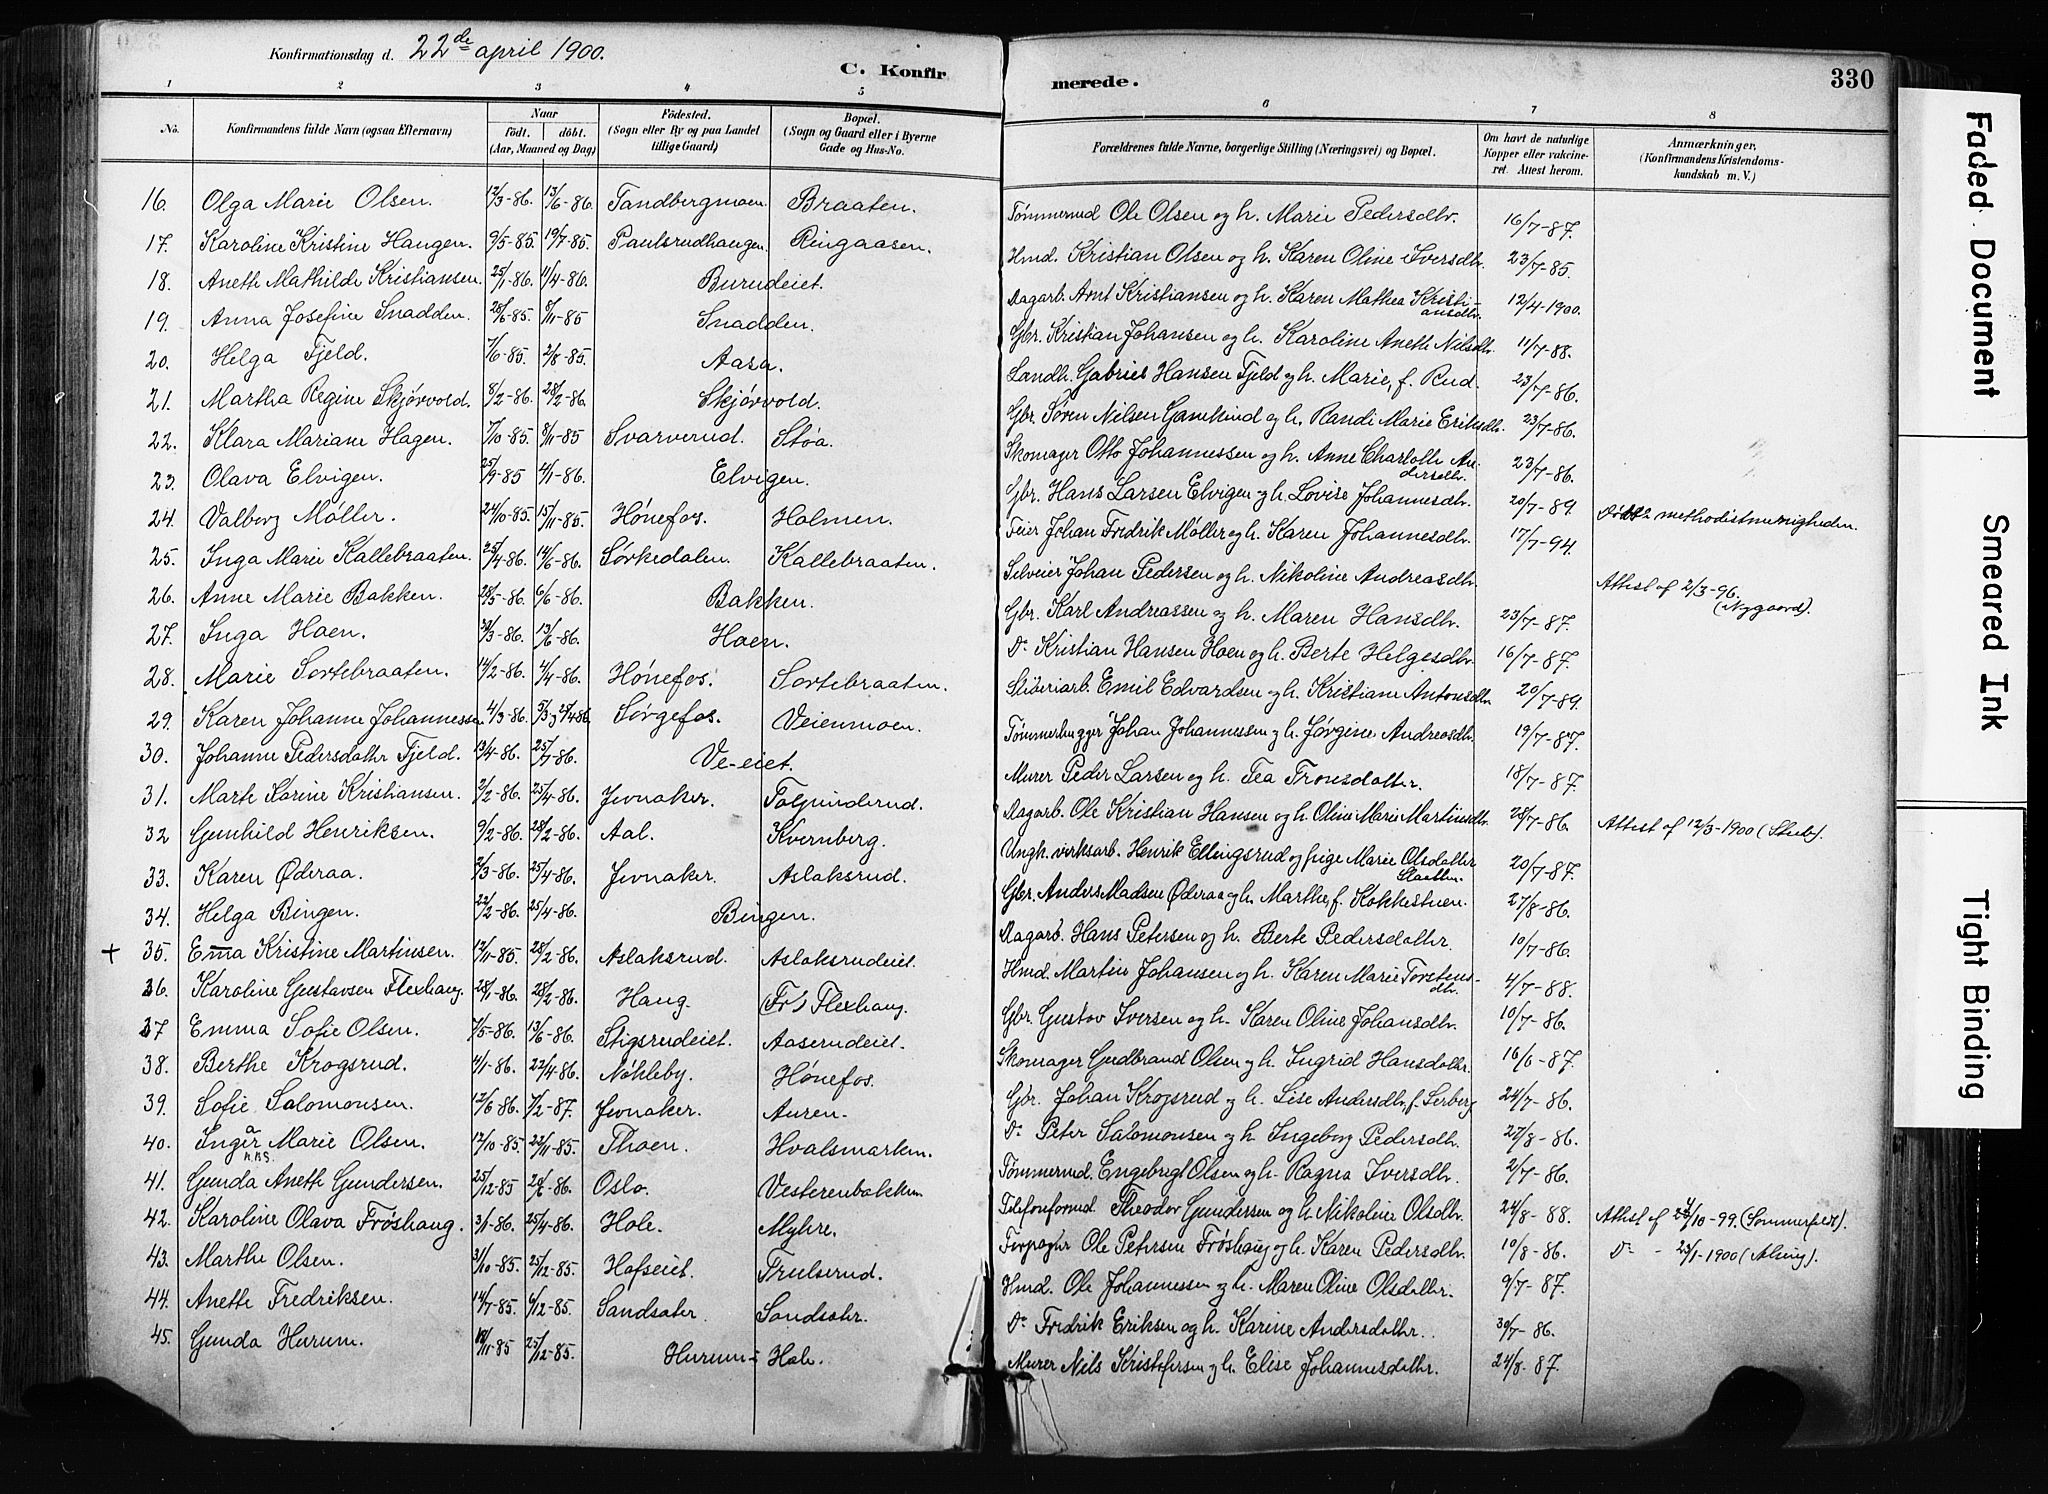 Konfirmationsdag d. 22de april 1900.
C. Konfirmerede.
330
1 2 3 4 5 6 7 8
No. | Konfirmandens fulde Navn (ogsaa Efternavn) | Naar født. | døbt. (Aar, Maaned og Dag) | Fødested. (Sogn eller By og paa Landet tillige Gaard) | Bopæl. (Sogn og Gaard eller i Byerne Gade og Hus-No. | Forældrenes fulde Navne, borgerlige Stilling (Næringsvei) og Bopæl. | Om havt de naturlige Kopper eller vakcineret. Attest herom. | Anmærkninger. (Konfirmandens Kristendomskundskab m. V.)
16. Olga Marie Olsen. 12/3-86. 13/6-86. Tandbergmoen. Braaten. Tømmermd Ole Olsen og h. Marie Pedersdtr. 16/7-87.
17. Karoline Kristine Haugen. 9/5-85. 19/7-85. Paulsrudhaugen. Ringaasen. Hmd. Kristian Olsen og h. Karen Oline Iversdtr. 23/7-85.
18. Anette Mathilde Kristiansen. 25/1-86. 11/4-86. Burudeiet. Dagarb. Arnt Kristiansen og h. Karen Mathea Kristiansdtr. 12/4-1900.
19. Anna Josefine Snadden. 28/6-85. 8/11-85 Snadden. Gbr. Kristian Johansen og h. Karoline Anette Nilsdtr. 11/7-88.
20. Helga Fjeld. 7/6-85. 2/8-85. Aasa. Landh. Gabriel Hansen Fjeld og h. Marie, f. Rud. 23/7-86.
21. Martha Regine Skjørvold. 8/2-86. 28/2-86. Skjørvold. Gbr. Søren Nilsen og h. Randi Marie Eriksdtr. 23/7-86.
22. Klara Mariane Hagen. 7/10-85. 8/11-85 Svarverud. Støa. Skomager Otto Johannessen og h. Anne Charlotte Andersdtr. 23/7-86.
23. Olava Elvigen. 25/9-85 4/1-86. Elvigen. Gbr. Hans Larsen Elvigen og h. Lovise Johannesdtr. 20/7-89.
24. Valborg Møller. 24/10-85. 15/11-85. Hønefos. Holmen. Feier Johan Fredrik Møller og h. Karen Johannesdtr. 17/7-94. Døbt i methodistmenigheden.
25. Inga Marie Kallebraaten. 25/4-86. 14/6-86. Sørkedalen. Kallebraaten. Selveier Johan Pedersen og h. Nikoline Andreasdtr. Attest af 2/3-96. (Nygaard).
26. Anne Marie Bakken. 28/5-86. 6/6-86. Bakken. Gbr. Karl Andreassen og h. Maren Hansdtr. 23/7-87.
27. Inga Hoen. 30/3-86. 13/6-86. Hoen. Do Kristian Hansen Hoen og h. Berte Helgesdtr. 16/7-87.
28. Marie Sortebraaten. 14/2-86. 4/4-86. Hønefos. Sortebraaten. Sliberiarb. Emil Edvardsen og h. Kristiane Antonsdtr 20/7-89.
29. Karen Johanne Johannessen. 4/3-86. Sørgefos. Veienmoen. Tømmerhugger Johan Johannessen og h. Jørgine Andreasdtr. 19/7-87.
30. Johanne Pedersdatter Fjeld. 13/4-86. 25/7-86. Ve-eiet. Murer Peder Larsen og h. Tea Tronsdatter. 18/7-87.
31. Marte Karine Kristiansen. 2/2-86. 25/4-86. Jevnaker. Dagarb. Ole Kristian Hansen og h. Oline Marie Martinsdtr. 28/7-86. Attest af 12/3-1900 (Stub).
32 Gunhild Henriksen. 9/2-86. 28/2-86. Aal. Kvernberg. Ungk. virksarb. Henrik Ellingsrud og pige Marie Olsdatter 20/7-87.
33. Karen Øderaa. 2/3-86. 25/4-86. Jevnaker. Aslaksrud. Gbr. Anders Madsen Øderaa og h. Marthe, f. Kokkestuen. 27/8-86.
34. Helga Bingen. 22/2-86. 25/4-86. Bingen. Dagarb. Hans Petersen og h. Berte Pedersdatter. 10/7-86.
+ 35. Ema Kristine Martinsen. 12/11-85. 28/2-86. Aslaksrud. Aslaksrudeiet. Hmd. Martin Johansen og h. Karen Marie Torstensdtr. 4/7-88.
36. Karoline Gustavsen Flexhaug. 28/1-86. 28/2-86. Haug. Flexhaug. Gbr. Gustav Iversen og h. Karen Oline Johansdtr. 10/7-86.
37 Emma Sofie Olsen. 7/5-86. 13/6-86. Stigsrudeiet. Aaserudeiet. Skomager Gudbrand Olsen og h. Ingrid Hansdatter. 16/6-87.
38. Berthe Krogsrud. 4/1-86. 22/4-86. Nøkleby. Hønefos. Gbr. Johan Krogsrud og h. Lise Andersdtr, f. Serberg 24/7-86.
39. Sofie Salomonsen. 12/6-86. 7/2-87. Jevnaker. Auren. Do Peter Salomonsen og h. Ingeborg Pedersdtr. 27/8-86.
40. Inga Marie Olsen. 17/10-85. 22/11-85. Thoen. Hvalsmarken. Tømmermd. Engebregt Olsen og h. Ragna Iversdtr. 2/7-86.
41. Gunda Anette Gundersen. 25/12-85 Oslo. Vesterenbakken Telefonformd Theodor Gundersen og h. Nikoline Olsdtr. 24/8-88. (Sommerfeldt).
42. Karoline Olava Frøshaug. 3/1-86. 25/4-86. Hole. Myhre. Forpagter Ole Petersen Frøshaug og h. Karen Pedersdtr. 10/8-86. Do - 23/1-1900 (Alsing).
43. Marthe Olsen. 31/10-85. 25/12-85. Hofseiet. Trulserud. Hmd. Ole Johannessen og h. Maren Oline Olsdatter. 9/7-87.
44. Anette Fredriksen. 14/7-85. 6/12-85. Sandsæter. Sandsæter. Do Fredrik Eriksen og h. Karine Andersdatter. 30/7-86.
45. Gunda Hurum. 25/12-85. Hurum - Hole. Murer Nils Kristofersen og h. Elise Johannesdatter. 24/8-87.
Faded Document
Smeared Ink
Tight Binding